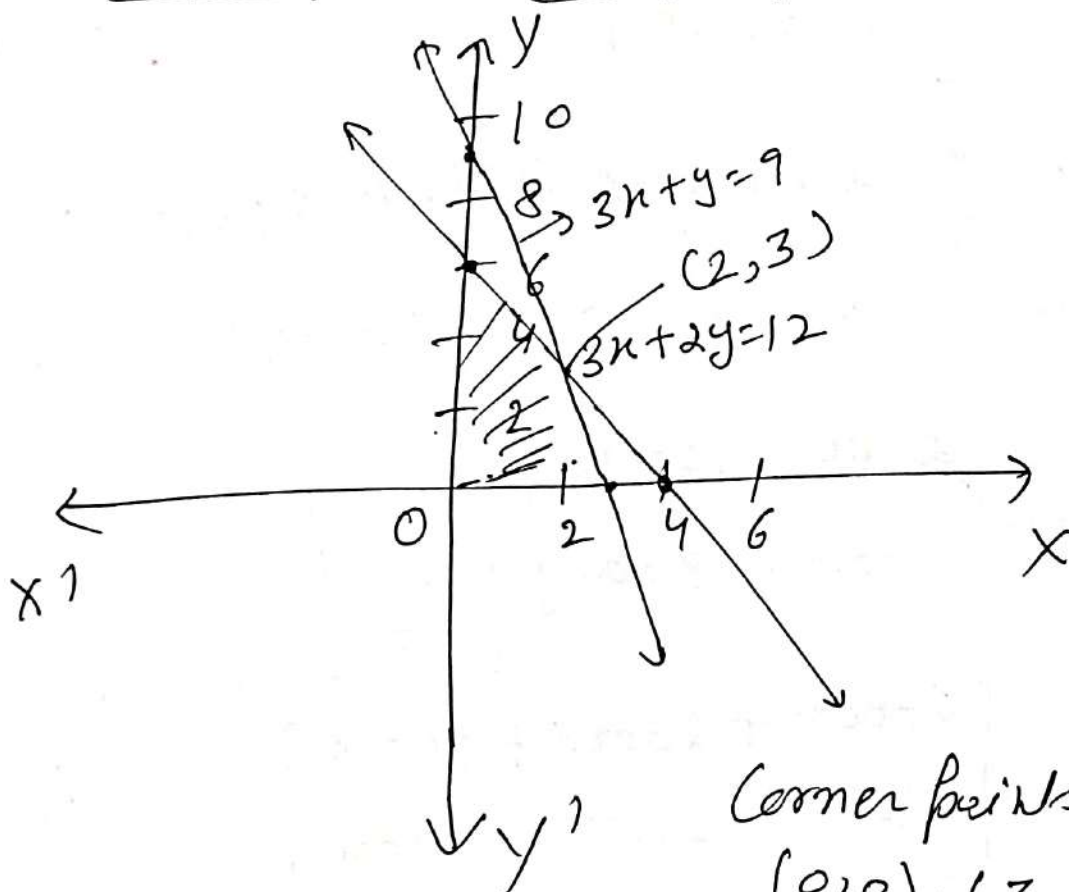 Y
10
8
3x+y=9
(2,3)
6
4
3x+2y=12
2
O
2
4
6
X
X'
Y'
Corner points
(0,0)